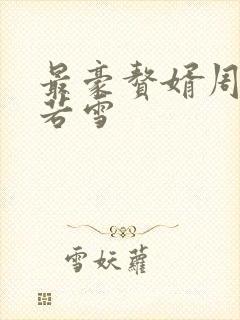 最豪赘婿周
若雪
雪妖蘿